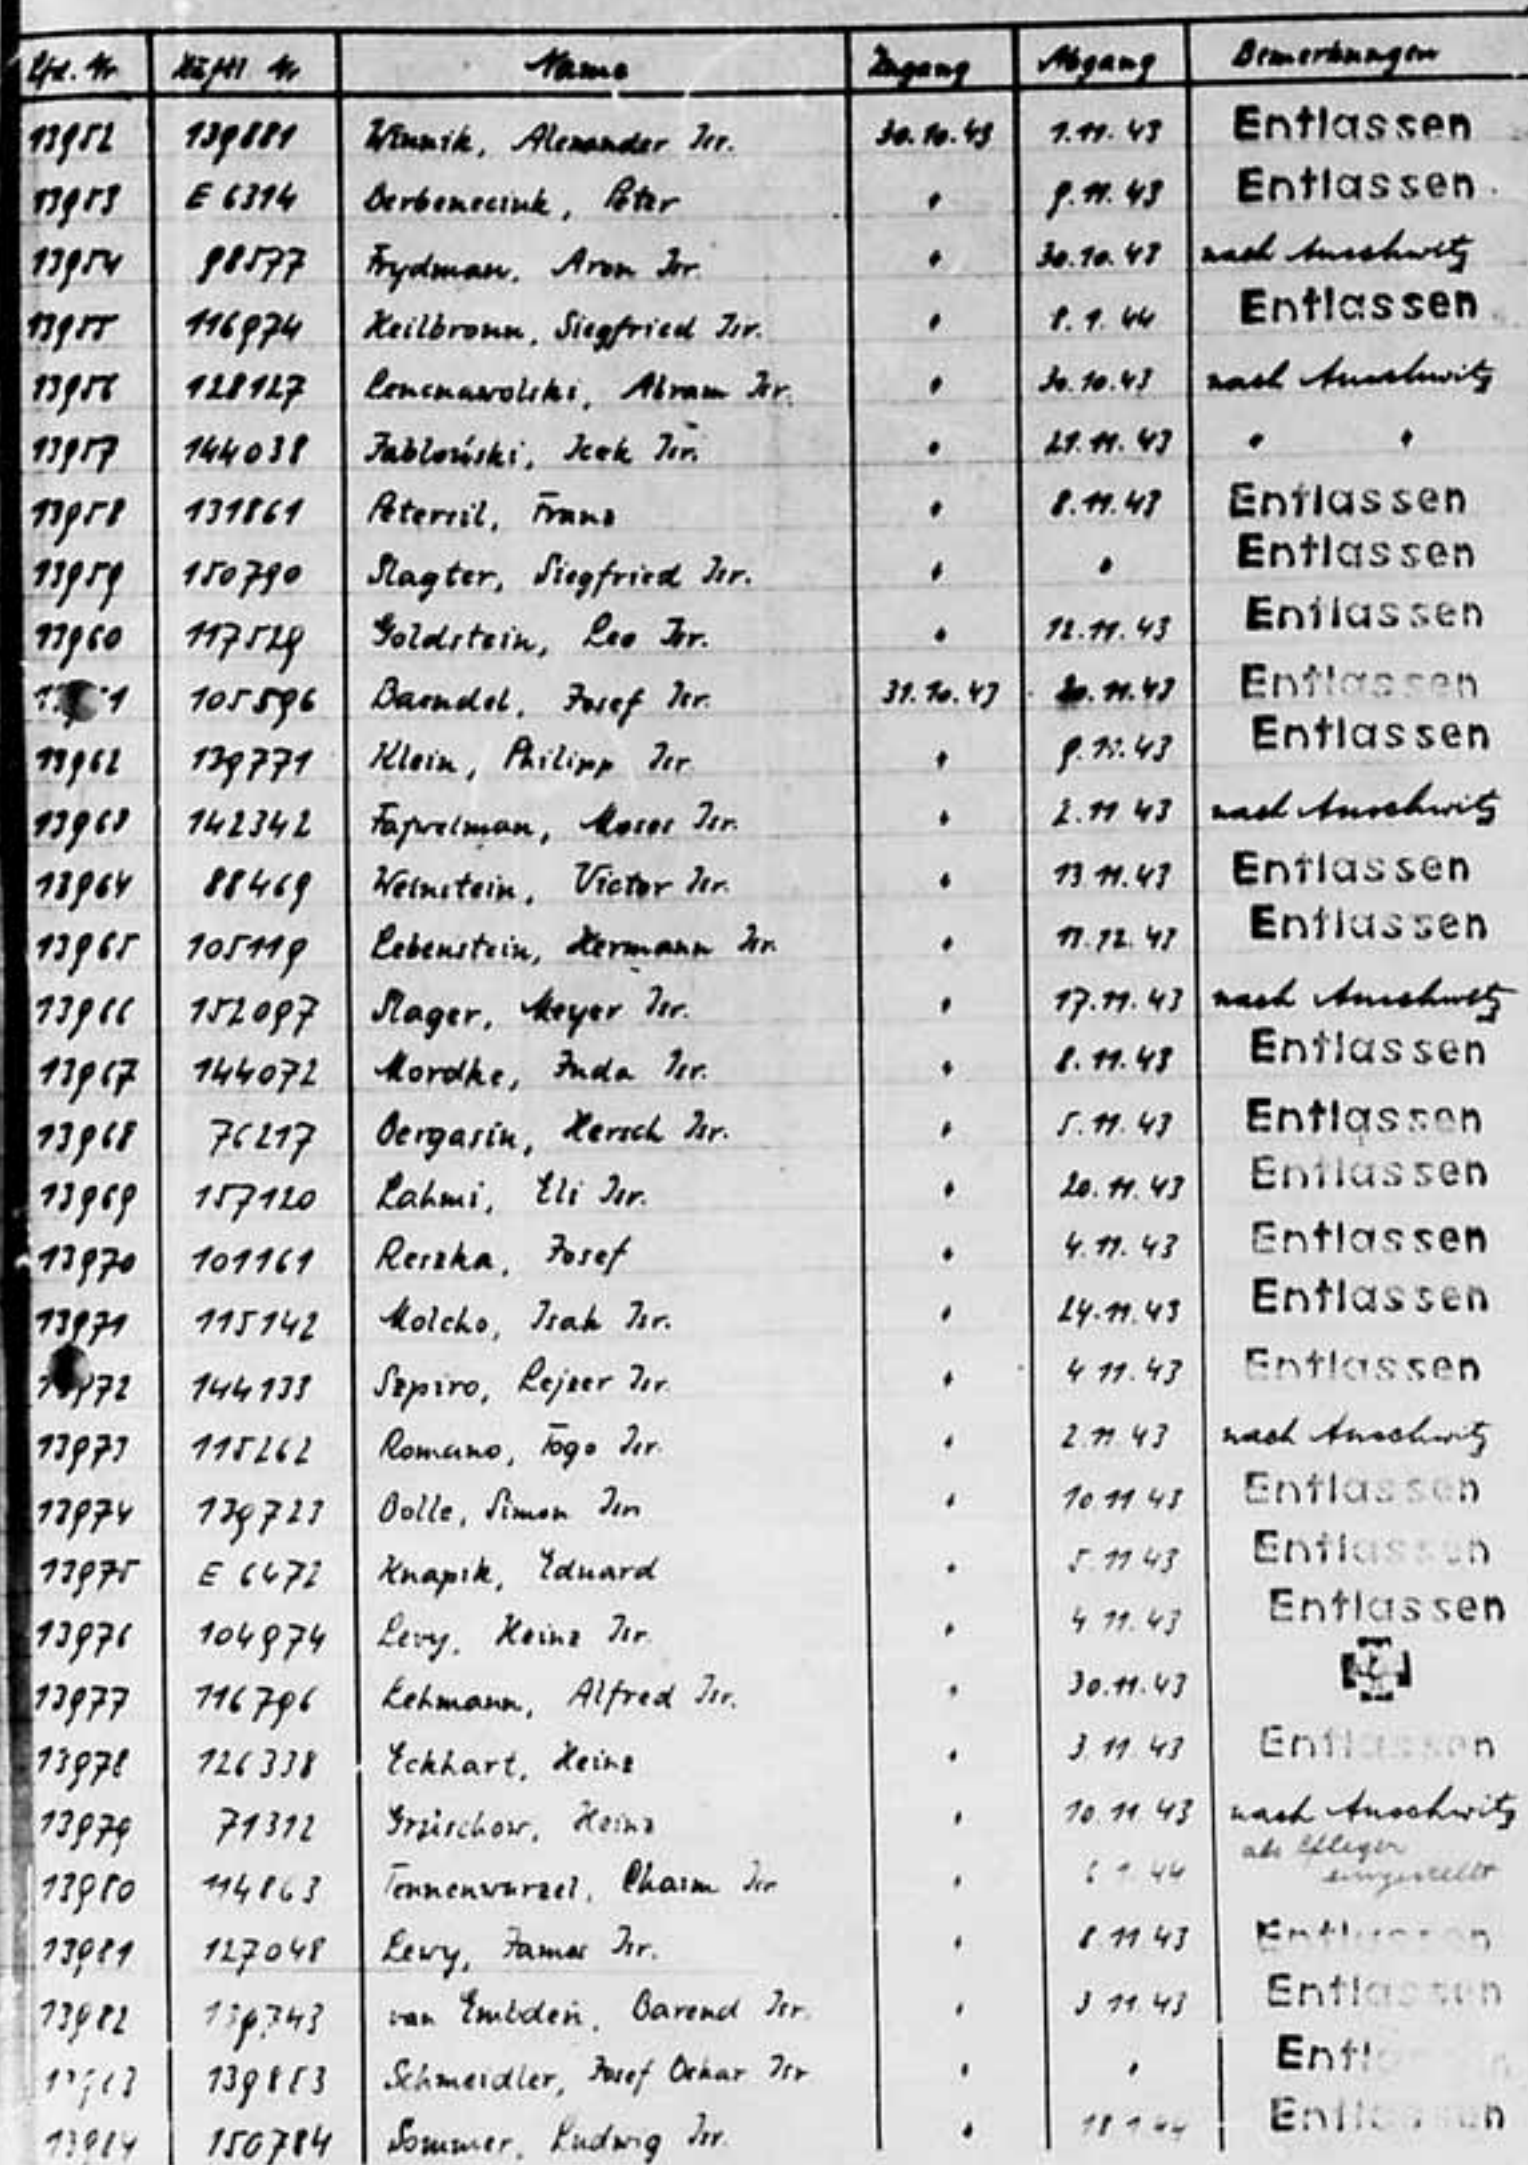 Lfd. Nr Häftl Nr Name Zugang Abgang Bemerkungen
13952 139881 Winnik, Alexander Isr. 30.10.43 1.11.43 Entlassen
13953 E 6314 Peter " 9.11.43 Entlassen
13954 98577 Frydman, Aron Isr. " 30.10.43 nach Auschwitz
13955 116974 Heilbronn, Siegfried Isr. " 8.1.44 Entlassen
13956 128127 Abram Isr. " 30.10.43 nach Auschwitz
13957 144038 Jabłoński, Icek Isr. " 21.11.43 " "
13958 131861 Petersil, Franz " 8.11.43 Entlassen
13959 150790 Slagter, Siegfried Isr. " " Entlassen
13960 117529 Goldstein, Leo Isr. " 12.11.43 Entlassen
105596 Baendel, Josef Isr. 31.10.43 20.11.43 Entlassen
13962 139771 Klein, Philipp Isr. " 9.11.43 Entlassen
13963 142342 Fajwelman, Moses Isr. " 2.11.43 nach Auschwitz
13964 88469 Weinstein, Victor Isr. " 13.11.43 Entlassen
13965 105119 Lebenstein, Hermann Isr. " 11.12.43 Entlassen
13966 152097 Slager, Meyer Isr. " 17.11.43 nach Auschwitz
13967 144072 Mordke, Juda Isr. " 8.11.43 Entlassen
13968 76217 Bergasin, Hersch Isr. " 5.11.43 Entlassen
13969 157120 Rahmi, Eli Isr. " 20.11.43 Entlassen
13970 101161 Reszka, Josef " 4.11.43 Entlassen
13971 115142 Molcho, Isak Isr. " 24.11.43 Entlassen
13972 144133 Szpiro, Lejzer Isr. " 4.11.43 Entlassen
13973 115262 Romano, Togo Isr. " 2.11.43 nach Auschwitz
13974 139723 Dolle, Simon Isr. " 10.11.43 Entlassen
13975 E 6472 Knapik, Eduard " 5.11.43 Entlassen
13976 104974 Levy, Heinz Isr. " 4.11.43 Entlassen
13977 116796 Lehmann, Alfred Isr. " 30.11.43
13978 126338 Eckhart, Heinz " 3.11.43 Entlassen
13979 71312 Grzischow, Heinz " 10.11.43 nach Auschwitz
13980 114863 Tennenwurzel, Chaim Isr. " 6.1.44 als Pfleger
eingestellt
13981 127048 Levy, James Isr. " 8.11.43 Entlassen
13982 139743 van Embden, Barend Isr. " 3.11.43 Entlassen
13983 139853 Schmeidler, Josef Oskar Isr. " " Entlassen
13984 150784 Sommer, Ludwig Isr. " 18.1.44 Entlassen